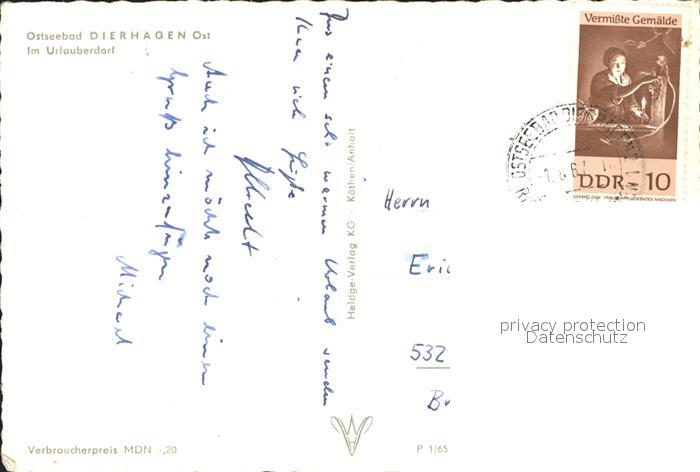 Ostseebad DIERHAGEN Ost
Im Urlauberdorf
Aus einem sehr warmen Urlaub senden
Ihnen viele Grüße
Albrecht
Auch ich möchte noch einen
Gruß hinzufügen
Michael
Verbraucherpreis MDN -,20
Heldge-Verlag KG · Köthen/Anhalt
P 1/65
Vermißte Gemälde
DDR 10
GERARD DOU TRAUBENPFLÜCKENDES MÄDCHEN
OSTSEEBAD
Herrn
Eri
532
privacy protection
Datenschutz